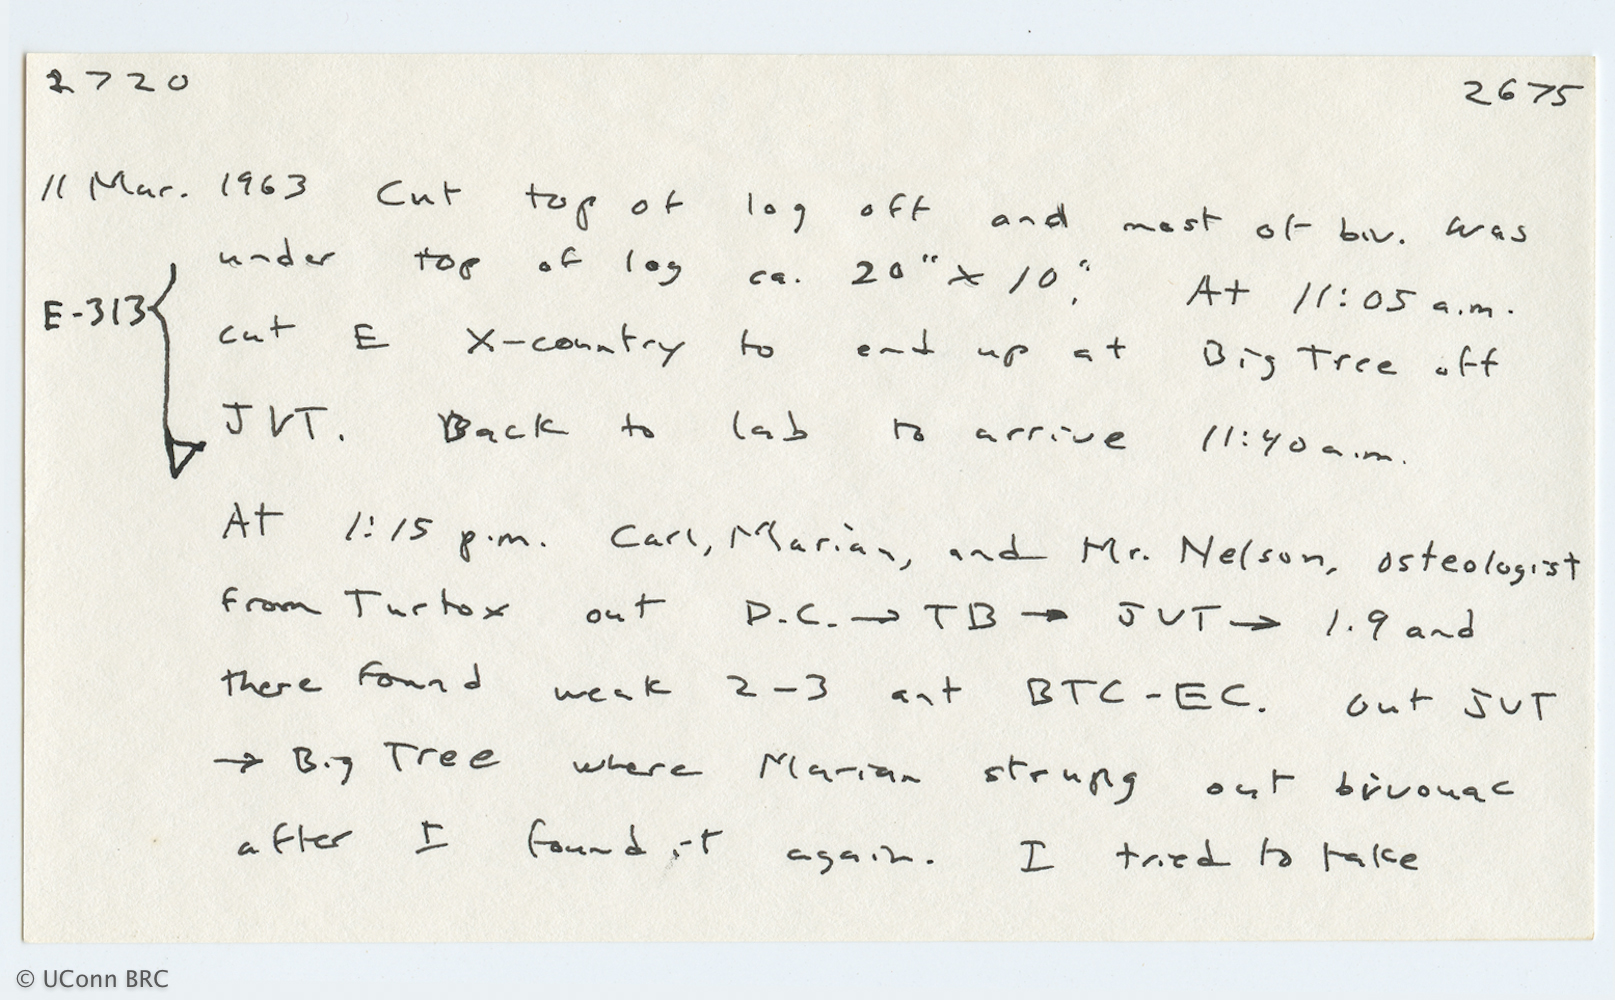 2720 2675
11 Mar. 1963 Cut top of log off and most of biv. was
under top of log ca. 20" x 10". At 11:05 a.m.
E-313 cut E X-country to end up at Big Tree off
JVT. Back to lab to arrive 11:40 a.m.
At 1:15 p.m. Carl, Marian, and Mr. Nelson, osteologist
from Turtox out D.C. → TB → JVT → 1.9 and
there found weak 2-3 ant BTC-EC. Out JVT
→ Big Tree where Marian strung out bivouac
after I found it again. I tried to take
© UConn BRC